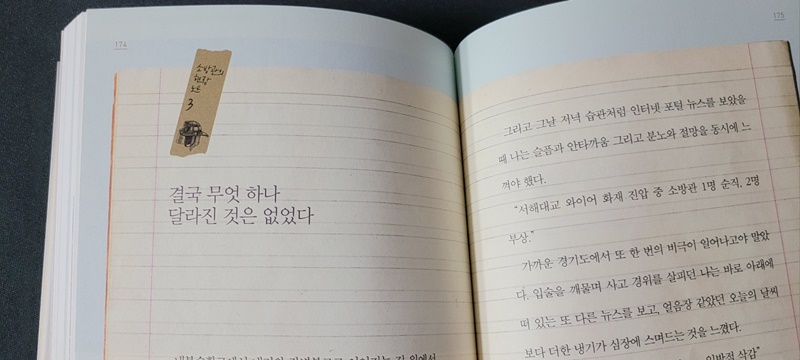 174
소방관의
현장
노트
3
결국 무엇 하나
달라진 것은 없었다
175
그리고 그날 저녁 습관처럼 인터넷 포털 뉴스를 보았을
때 나는 슬픔과 안타까움 그리고 분노와 절망을 동시에 느
껴야 했다.
“서해대교 와이어 화재 진압 중 소방관 1명 순직, 2명
부상.”
가까운 경기도에서 또 한 번의 비극이 일어나고야 말았
다. 입술을 깨물며 사고 경위를 살피던 나는 바로 아래에
떠 있는 또 다른 뉴스를 보고, 얼음장 같았던 오늘의 날씨
보다 더한 냉기가 심장에 스며드는 것을 느꼈다.
삭감”